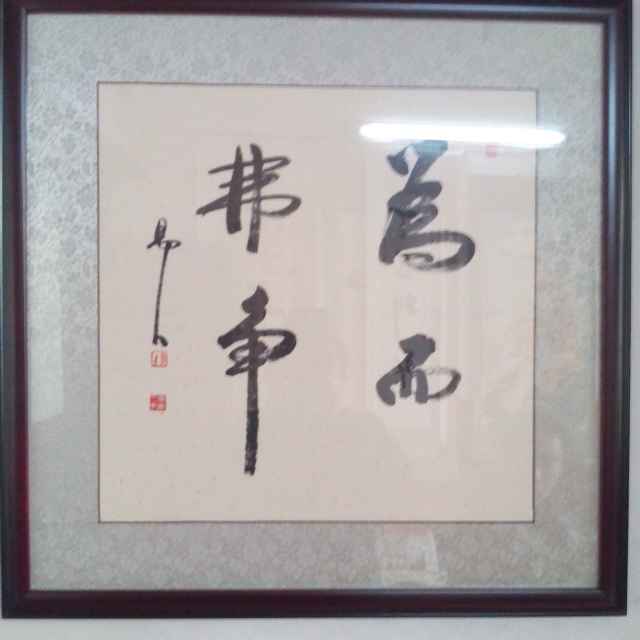 為而
弗争